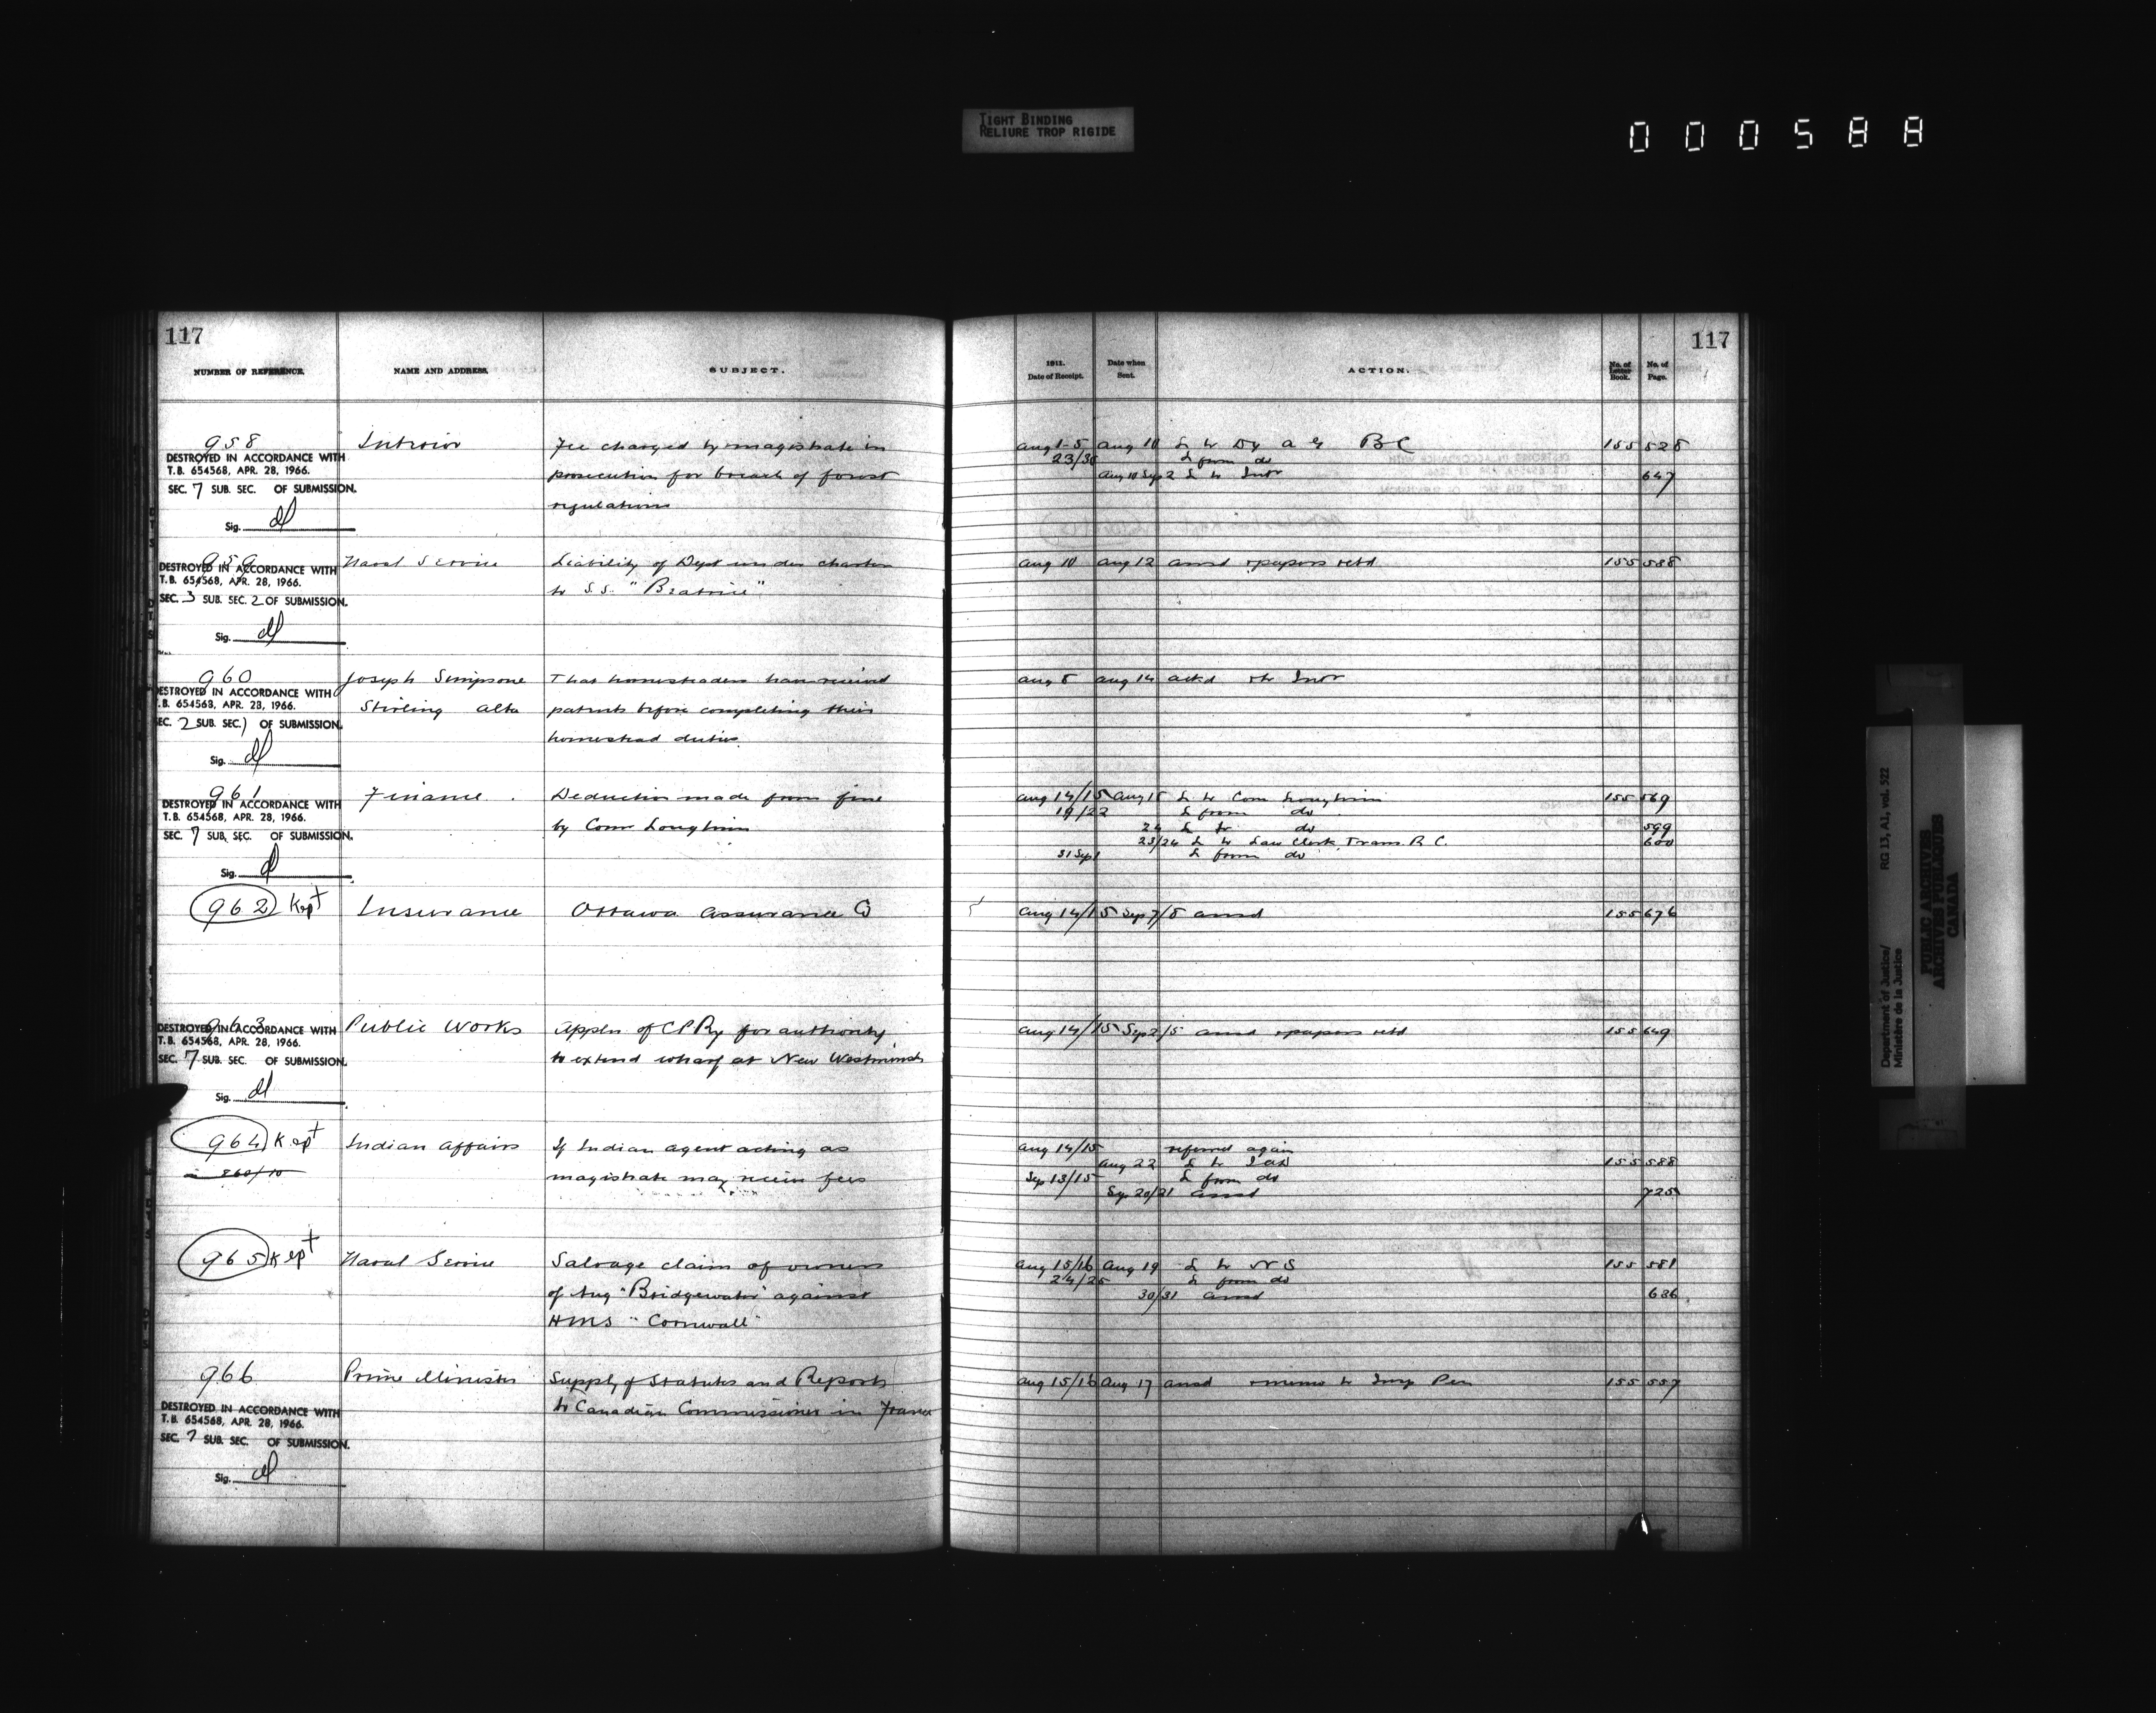 TIGHT BINDING
RELIURE TROP RIGIDE
000588
117
NUMBER OF REFERENCE.
NAME AND ADDRESS.
SUBJECT.
958
DESTROYED IN ACCORDANCE WITH
T.B. 654568, APR. 28, 1966.
SEC. 7 SUB. SEC. OF SUBMISSION.
Sig.
Interior
Fee charged by magistrate in
prosecution for breach of forest
regulations
959
DESTROYED IN ACCORDANCE WITH
T.B. 654568, APR. 28, 1966.
SEC. 3 SUB. SEC. 2 OF SUBMISSION.
Sig.
Naval Service
Liability of Dept under charter
to S.S. "Beatrice"
960
DESTROYED IN ACCORDANCE WITH
T.B. 654568, APR. 28, 1966.
SEC. 2 SUB. SEC. 1 OF SUBMISSION.
Sig.
Joseph Simpsone
Stirling Alta
That homesteaders have received
patents before completing their
homestead duties
961
DESTROYED IN ACCORDANCE WITH
T.B. 654568, APR. 28, 1966.
SEC. 7 SUB. SEC. OF SUBMISSION.
Sig.
Finance
Deduction made from fine
by Comr Loughrin
962 Kept
Insurance
Ottawa Assurance Co
963
DESTROYED IN ACCORDANCE WITH
T.B. 654568, APR. 28, 1966.
SEC. 7 SUB. SEC. OF SUBMISSION.
Sig.
Public Works
Appln of CPRy for authority
to extend wharf at New Westminster
964 Kept
260/10
Indian Affairs
If Indian agent acting as
magistrate may receive fees
965 Kept
Naval Service
Salvage claim of owners
of tug "Bridgewater" against
HMS "Cornwall"
966
DESTROYED IN ACCORDANCE WITH
T.B. 654568, APR. 28, 1966.
SEC. 7 SUB. SEC. OF SUBMISSION.
Sig.
Prime Minister
Supply of Statutes and Reports
to Canadian Commissioner in France
117
1911.
Date of Receipt.
Date when
Sent.
ACTION.
No. of
Letter
Book.
No. of
Page.
Aug 1-5 Aug 10 L to Dy A G BC 155 528
23/30 L from do
Aug 10 Sep 2 L to Intr 647
Aug 10 Aug 12 ansd &papers retd 155 538
Aug 8 Aug 14 ackd Intr
Aug 14/15 Aug 18 L to Com Loughrin 155 569
19/22 L from do
24 L to do 599
23/24 L to Law Clerk, Trans. R C. 600
31 Sep 1 L from do
Aug 14/15 Sep 7/8 ansd 155 676
Aug 14/15 Sep 2/5 ansd &papers retd 155 649
Aug 14/15 referred again
Aug 22 L to IA 155 588
Sep 13/15 L from do
Sep 20/21 ansd 725
Aug 15/16 Aug 19 L to NS 155 581
24/25 L from do
30/31 ansd 636
Aug 15/16 Aug 17 ansd &memo to Insp Pen 155 557
Department of Justice/
Ministère de la Justice
RG 13, A1, vol. 522
PUBLIC ARCHIVES
ARCHIVES PUBLIQUES
CANADA